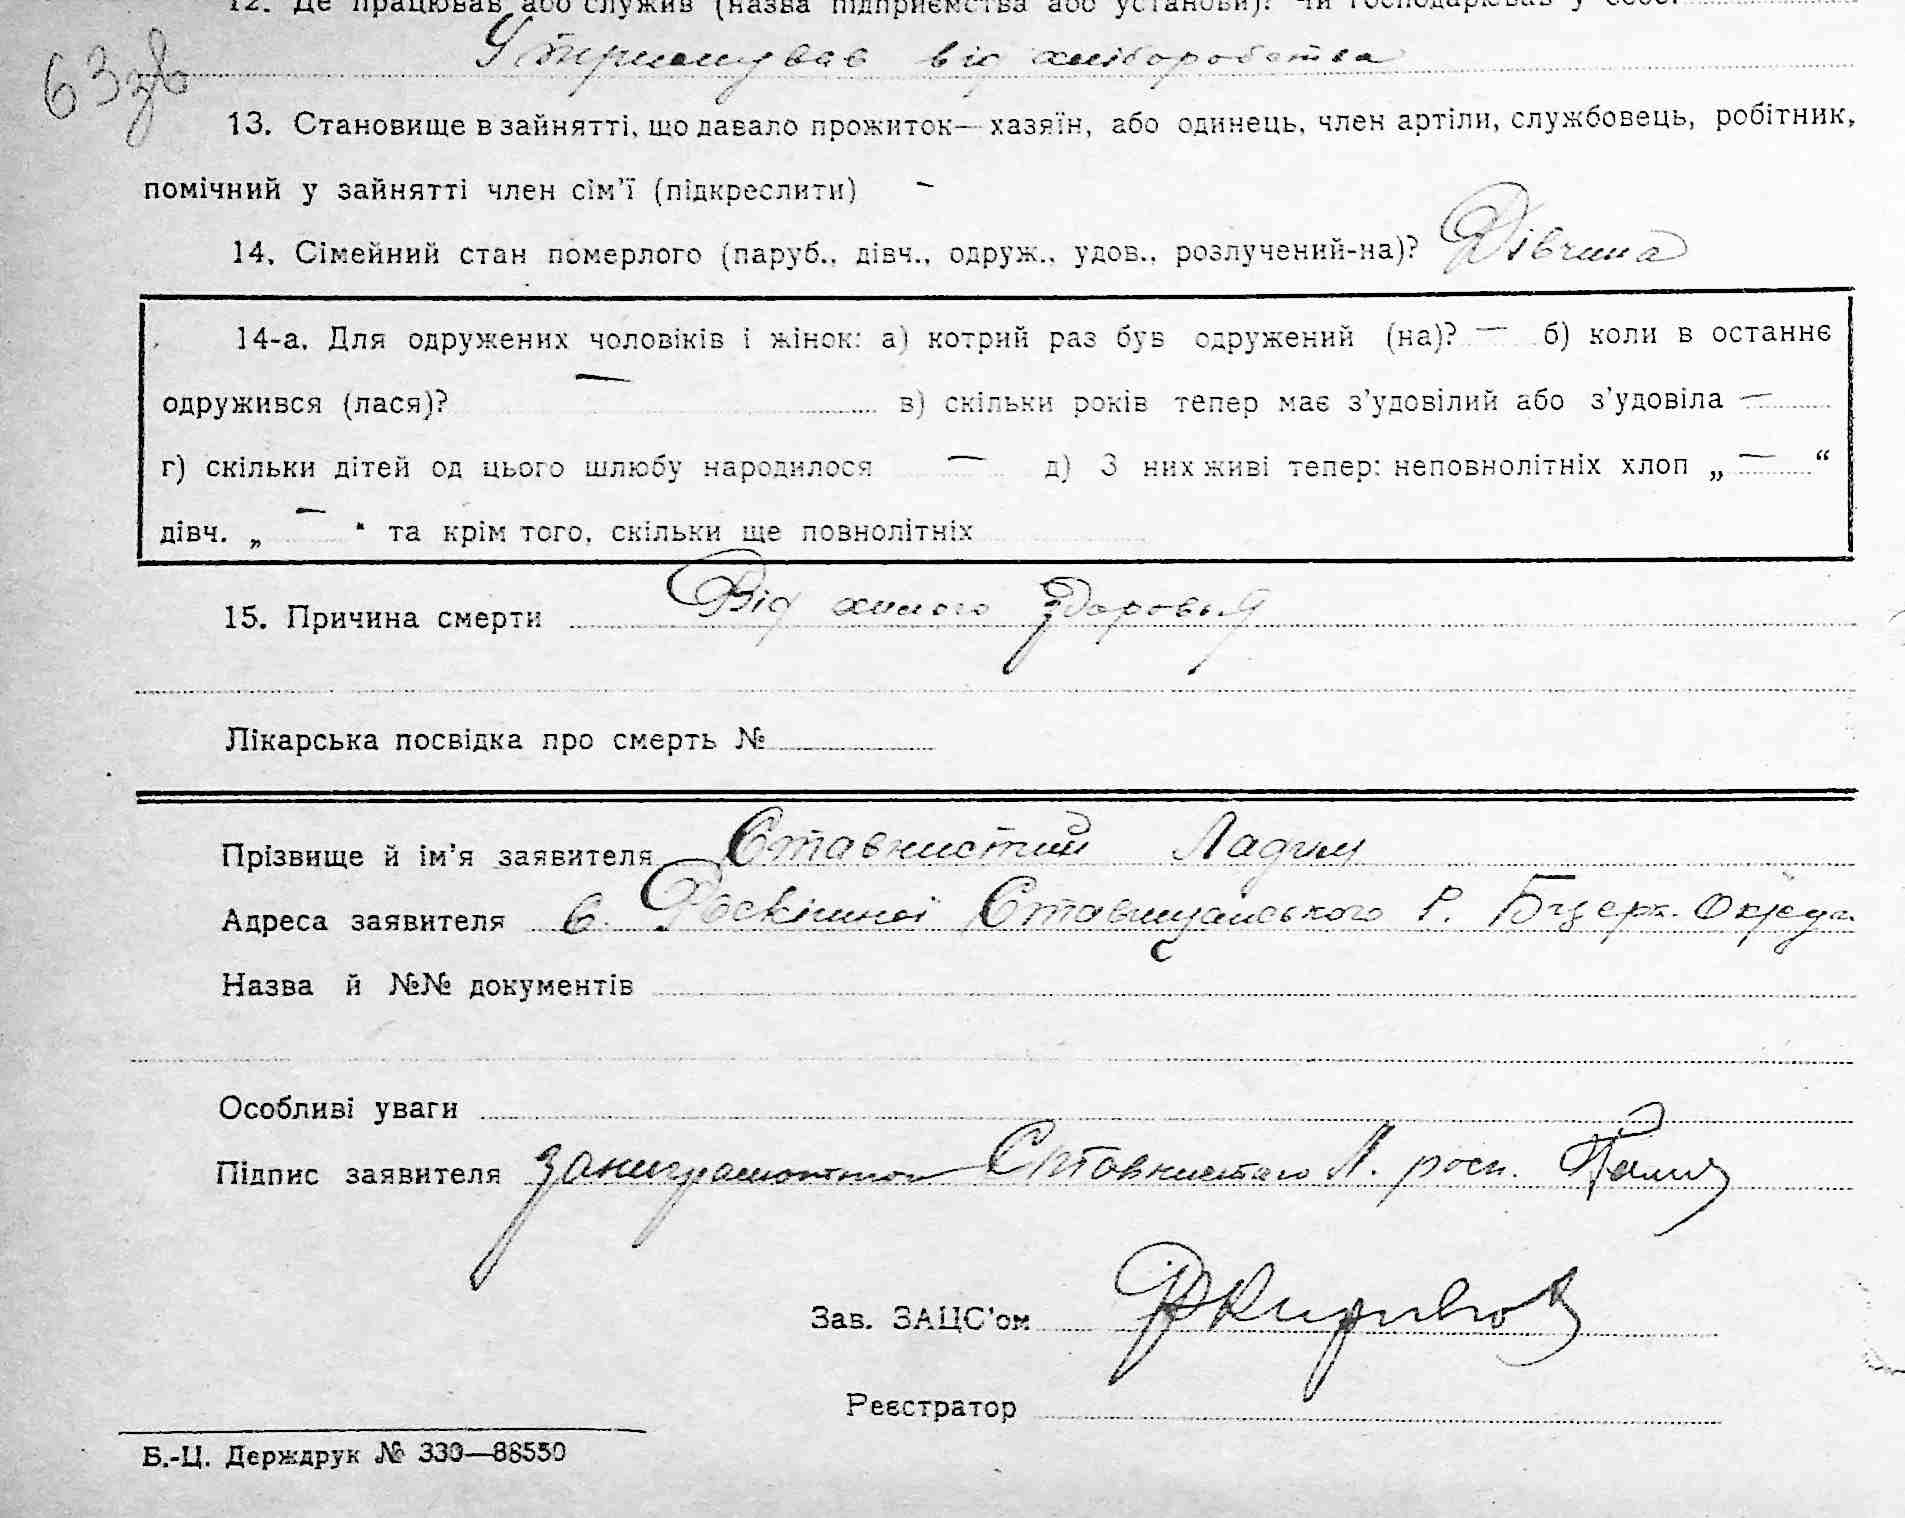 12. Де працював або служив (назва підприємства або установи)? Чи господарював у себе?
Утримував від хліборобства
63зв
13. Становище в зайнятті, що давало прожиток—хазяїн, або одинець, член артіли, службовець, робітник,
помічний у зайнятті член сім'ї (підкреслити) –
14. Сімейний стан померлого (паруб., дівч., одруж., удов., розлучений-на)? Дівчина
14-а. Для одружених чоловіків і жінок: а) котрий раз був одружений (на)? — б) коли в останнє
одружився (лася)? — в) скільки років тепер має з'удовілий або з'удовіла —
г) скільки дітей од цього шлюбу народилося — д) З них живі тепер: неповнолітніх хлоп „ — “
дівч. „ — “ та крім того, скільки ще повнолітніх
15. Причина смерти Від хилого здоровья
Лікарська посвідка про смерть №
Прізвище й ім'я заявителя Ставнистий Ладим
Адреса заявителя с. Роскішної Ставищанського Р. Бцерк. Округи
Назва й №№ документів
Особливі уваги
Підпис заявителя Ставнистаго Л. росп.
Зав. ЗАЦС'ом
Реєстратор
Б.-Ц. Держдрук № 330—88550